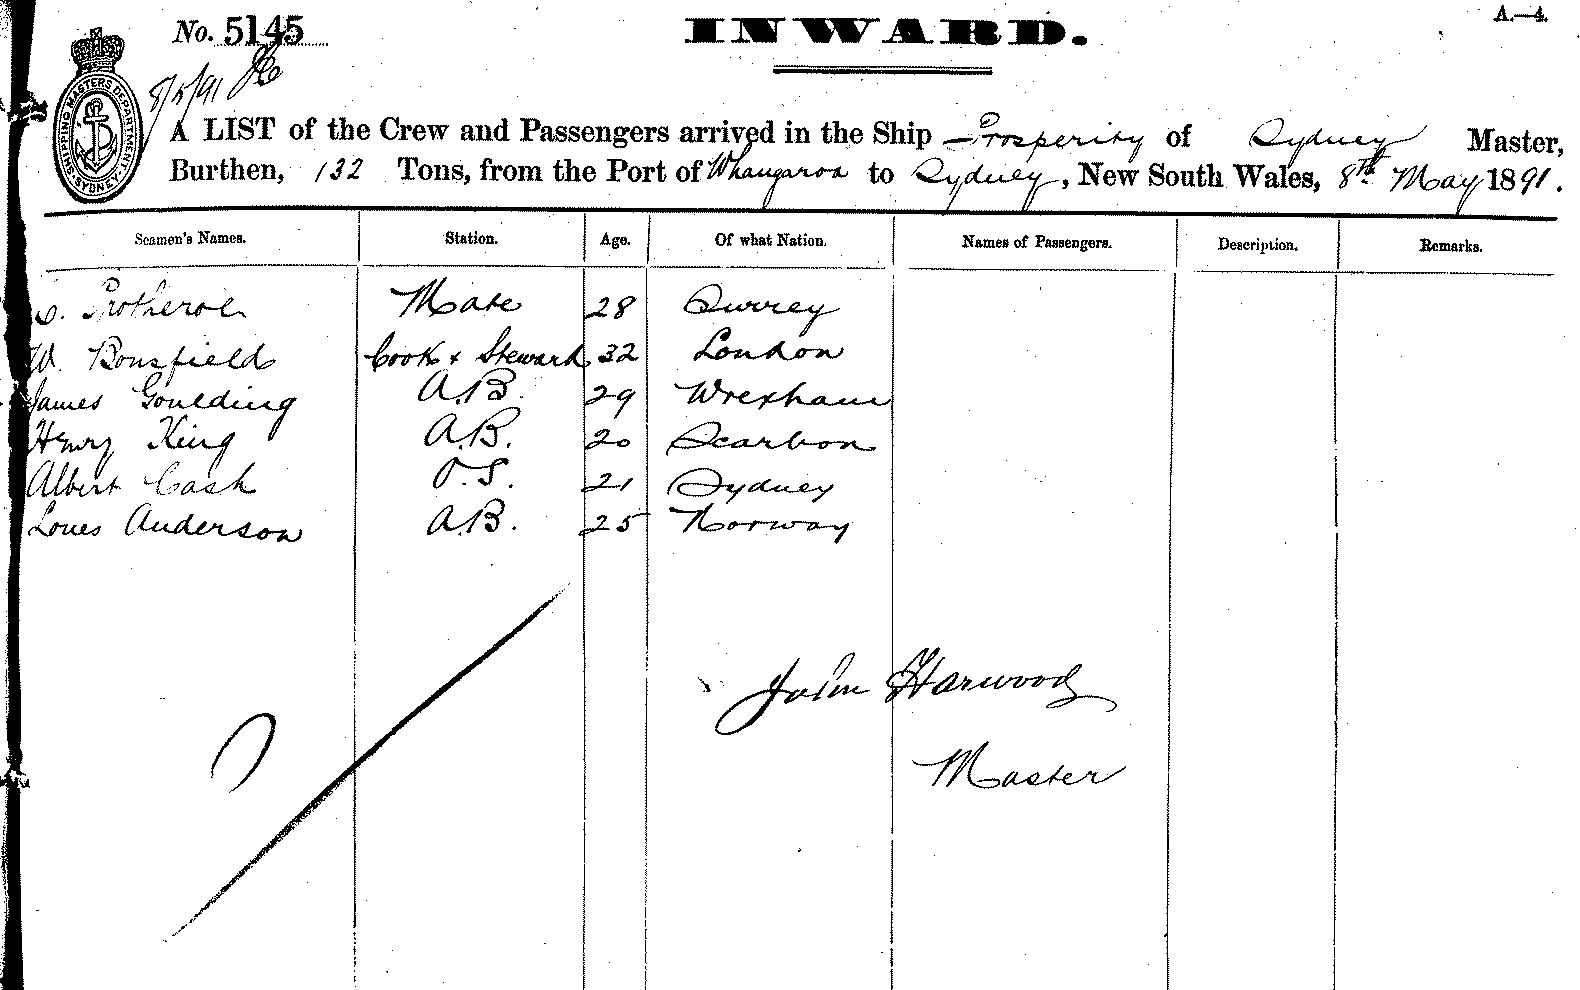 No. 5145
INWARD.
A.—4.
8/5/91
SHIPPING MASTERS DEPARTMENT SYDNEY
A LIST of the Crew and Passengers arrived in the Ship Prosperity of Sydney Master,
Burthen, 132 Tons, from the Port of Whangaroa to Sydney, New South Wales, 8th May 1891.
Seamen's Names. Station. Age. Of what Nation. Names of Passengers. Description. Remarks.
Protheroe Mate 28 Surrey
W. Bousfield Cook & Steward 32 London
James Goulding A.B. 29 Wrexham
Henry King A.B. 20
Albert Cash O.S. 21 Sydney
Loues Anderson A.B. 25 Norway
John Harwood
Master